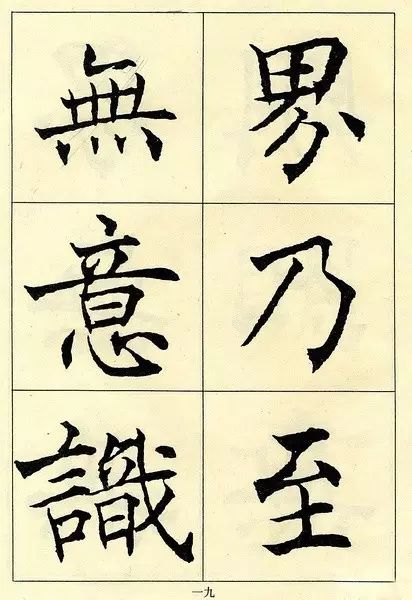 界乃至
無意識
一九